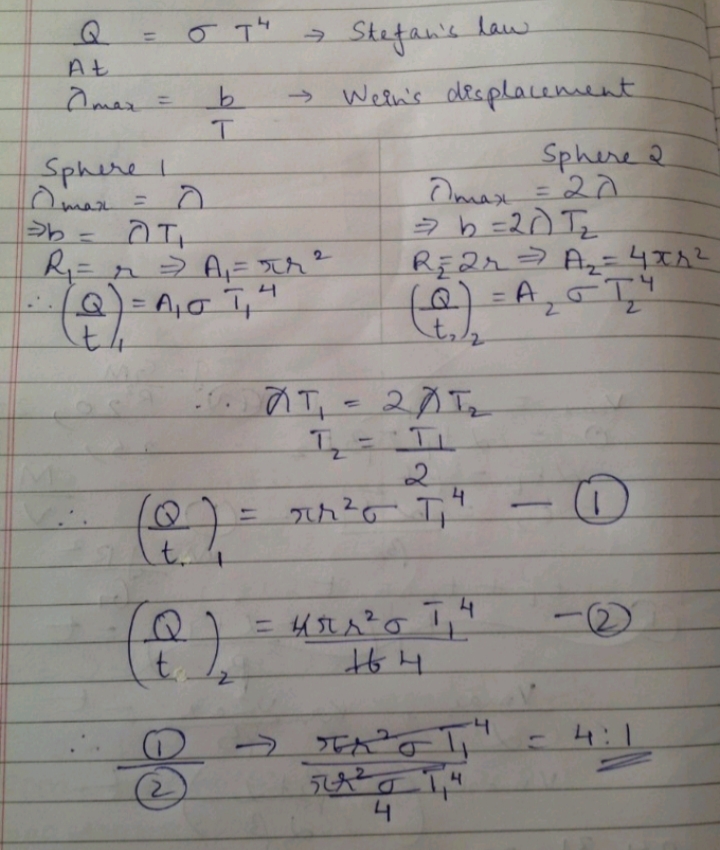 Q/At = σ T⁴ → Stefan's law
λmax = b/T → Wein's displacement
Sphere 1
λmax = λ
⇒b = λT₁
R₁ = r ⇒ A₁ = πr²
∴ (Q/t)₁ = A₁σ T₁⁴
Sphere 2
λmax = 2λ
⇒ b = 2λT₂
R₂ = 2r ⇒ A₂ = 4πr²
(Q/t₂)₂ = A₂ σ T₂⁴
∴ λT₁ = 2λT₂
T₂ = T₁/2
∴ (Q/t)₁ = πr²σ T₁⁴ — ①
(Q/t)₂ = 4πr²σ T₁⁴/16 4 — ②
∴ ①/② → πr²σ T₁⁴/(πr²σ T₁⁴/4) = 4:1